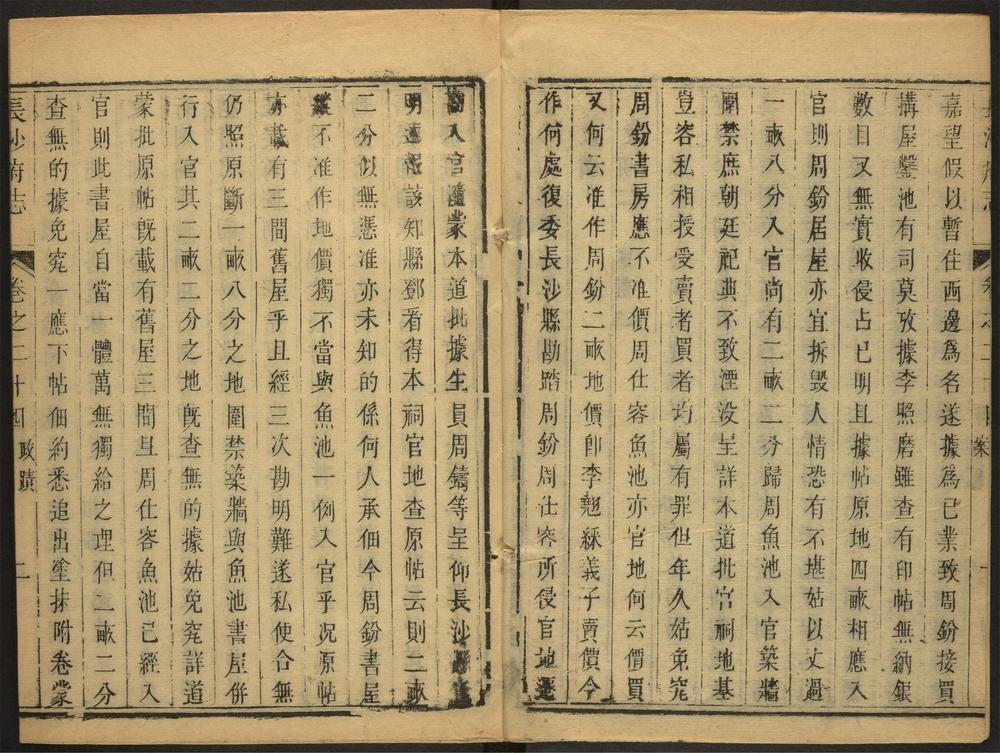 嘉望假以暫住西邊爲名遂據爲已業致周鈖接買
搆屋鑿池有司莫攷據李照磨雖查有印帖無納銀
數目又無實收侵占已明且據帖原地四畝相應入
官則周鈖居屋亦宜拆毀人情恐有不堪姑以丈過
一畝八分入官尚有二畝二分歸周魚池入官築牆
圍禁庶朝廷祀典不致湮没呈詳本道批官祠地基
豈容私相授受賣者買者均屬有罪但年久姑免究
周鈖書房應不准價周仕容魚池亦官地何云價買
又何云准作周鈖二畝地價卽李 綵義子賣價今
作何處復委長沙縣勘踏周鈖周仕容所侵官地
入官 蒙本道批據生員周鑄等呈仰長沙
明 該知縣鄧看得本祠官地查原帖云則二畝
二分似無憑准亦未知的係何人承佃今周鈖書屋
不准作地價獨不當與魚池一例入官乎况原帖
亦載有三間舊屋乎且經三次勘明難遂私使合無
仍照原斷一畝八分之地圍禁築牆與魚池書屋併
行入官其二畝二分之地旣查無的據姑免究詳道
蒙批原帖旣載有舊屋三間且周仕容魚池已經入
官則此書屋自當一體萬無獨給之理但二畝二分
查無的據免究一應下帖佃約悉追出塗抹附卷蒙
長沙府志 卷之二十四 政蹟 二